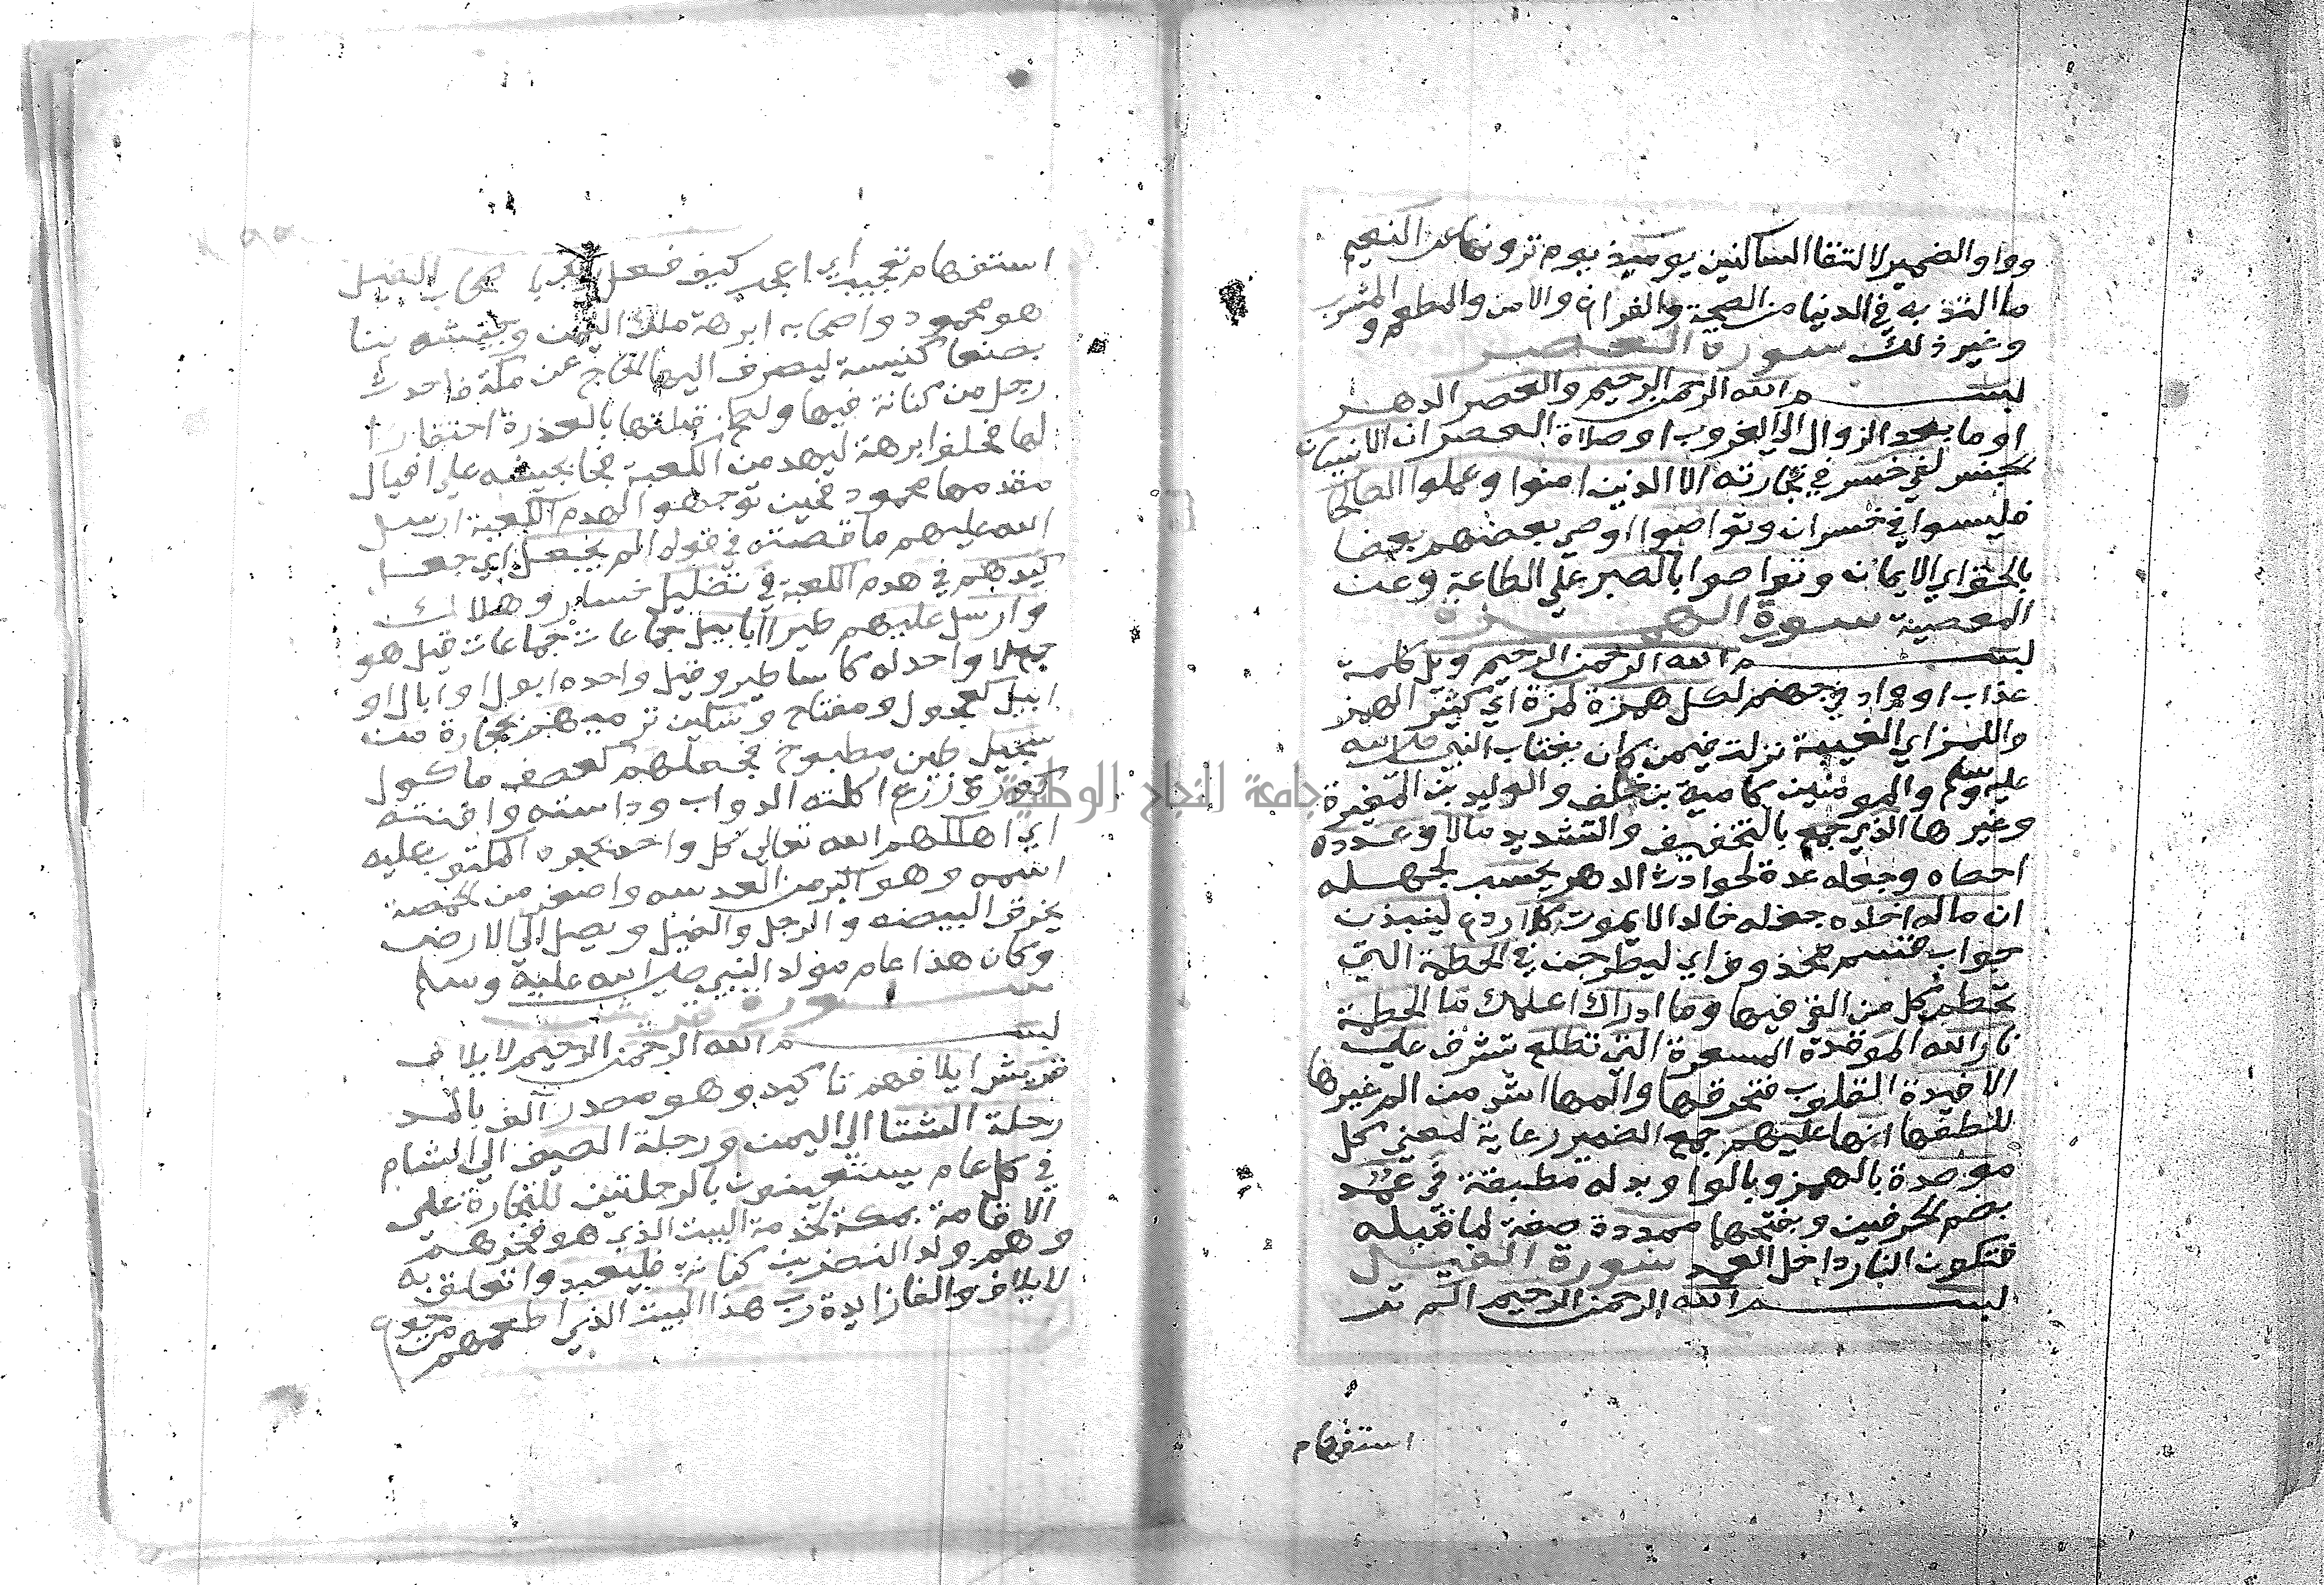 وواو الضمير لالتقا الساكنين يوميذ يوم ترونها عن النعيم
ما التذ به في الدنيا من الصحة والفراغ والامن والمطعم والمشرب
وغير ذلك سورة العصر
بسم الله الرحمن الرحيم والعصر الدهر
او ما بعد الزوال الي الغروب او صلاة العصر ان الانسان
الجنس لفي خسر في تجارته الا الذين امنوا وعملوا الصالحات
فليسوا في خسران وتواصوا اوصي بعضهم بعضا
بالحق اي الايمان وتواصوا بالصبر علي الطاعة وعن
المعصية سورة الهمزة
بسم الله الرحمن الرحيم ويل كلمة
عذاب او واد في جهنم لكل همزة لمزة اي كثير الهمز
واللمز اي الغيبة نزلت فيمن كان يغتاب النبي صلي الله
عليه وسلم والمومنين كامية بن خلف والوليد بن المغيرة
وغيرها الذي جمع بالتخفيف والتشديد مالا وعدده
احصاه وجعله عدة لحوادث الدهر يحسب لجهله
ان ماله اخلده جعله خالدا لا يموت كلا ردع لينبذن
جواب قسم محذوف اي ليطرحن في الحطمة التي
تحطم كل من القي فيها وما ادراك اعلمك ما الحطمة
نار الله الموقدة المسعرة التي تطلع تشرف علي
الافيدة القلوب فتحرقها والمها اشد من الم غيرها
للطفها انها عليهم جمع الضمير رعاية لمعني كل
موصدة بالهمز وبالواو بدله مطبقة في عمد
بضم الحرفين وبفتحها ممددة صفة لما قبله
فتكون النار داخل العمد سورة الفيل
بسم الله الرحمن الرحيم الم تر
استفهام
استفهام تعجيب اي اعجب كيف فعل ربك باصحاب الفيل
هو محمود واصحابه ابرهة ملك اليمن وجيشه بنا
بصنعا كنيسة ليصرف اليها الحاج عن مكة فاحدث
رجل من كنانة فيها ولطخ قبلتها بالعذرة احتقارا
لها فحلف ابرهة ليهدمن الكعبة فجا بجيشه علي افيال
مقدمها محمود فحين توجهوا لهدم الكعبة ارسل
الله عليهم ما قصته في قوله الم يجعل اي جعل
كيدهم في هدم الكعبة في تضليل خسار وهلاك
وارسل عليهم طيرا ابابيل جماعات جماعات قيل هو
جمع لا واحد له كاساطير وقيل واحده ابول او ابال او
ابيل كعجول ومفتاح وسكين ترميهم بحجارة من
سجيل طين مطبوخ فجعلهم كعصف ماكول
كورقة زرع اكلته الدواب وداسته وافنته
اي اهلكهم الله تعالي كل واحد بحجره المكتوب عليه
اسمه وهو اكبر من العدسه واصغر من الحمصة
يخرق البيضه والرجل والفيل ويصل الي الارض
وكان هذا عام مولد النبي صلي الله عليه وسلم
سورة قريش
بسم الله الرحمن الرحيم لايلاف
قريش ايلافهم تاكيد وهو مصدر آلف بالمد
رحلة الشتا الي اليمن ورحلة الصيف الي الشام
في كل عام يستعينون بالرحلتين للتجارة علي
الاقامة بمكة لخدمة البيت الذي هو فخرهم
وهم ولد النضر بن كنانة فليعبدوا تعلق به
لايلاف والفا زايدة رب هذا البيت الذي اطعمهم من جوع
جامعة النجاح الوطنية